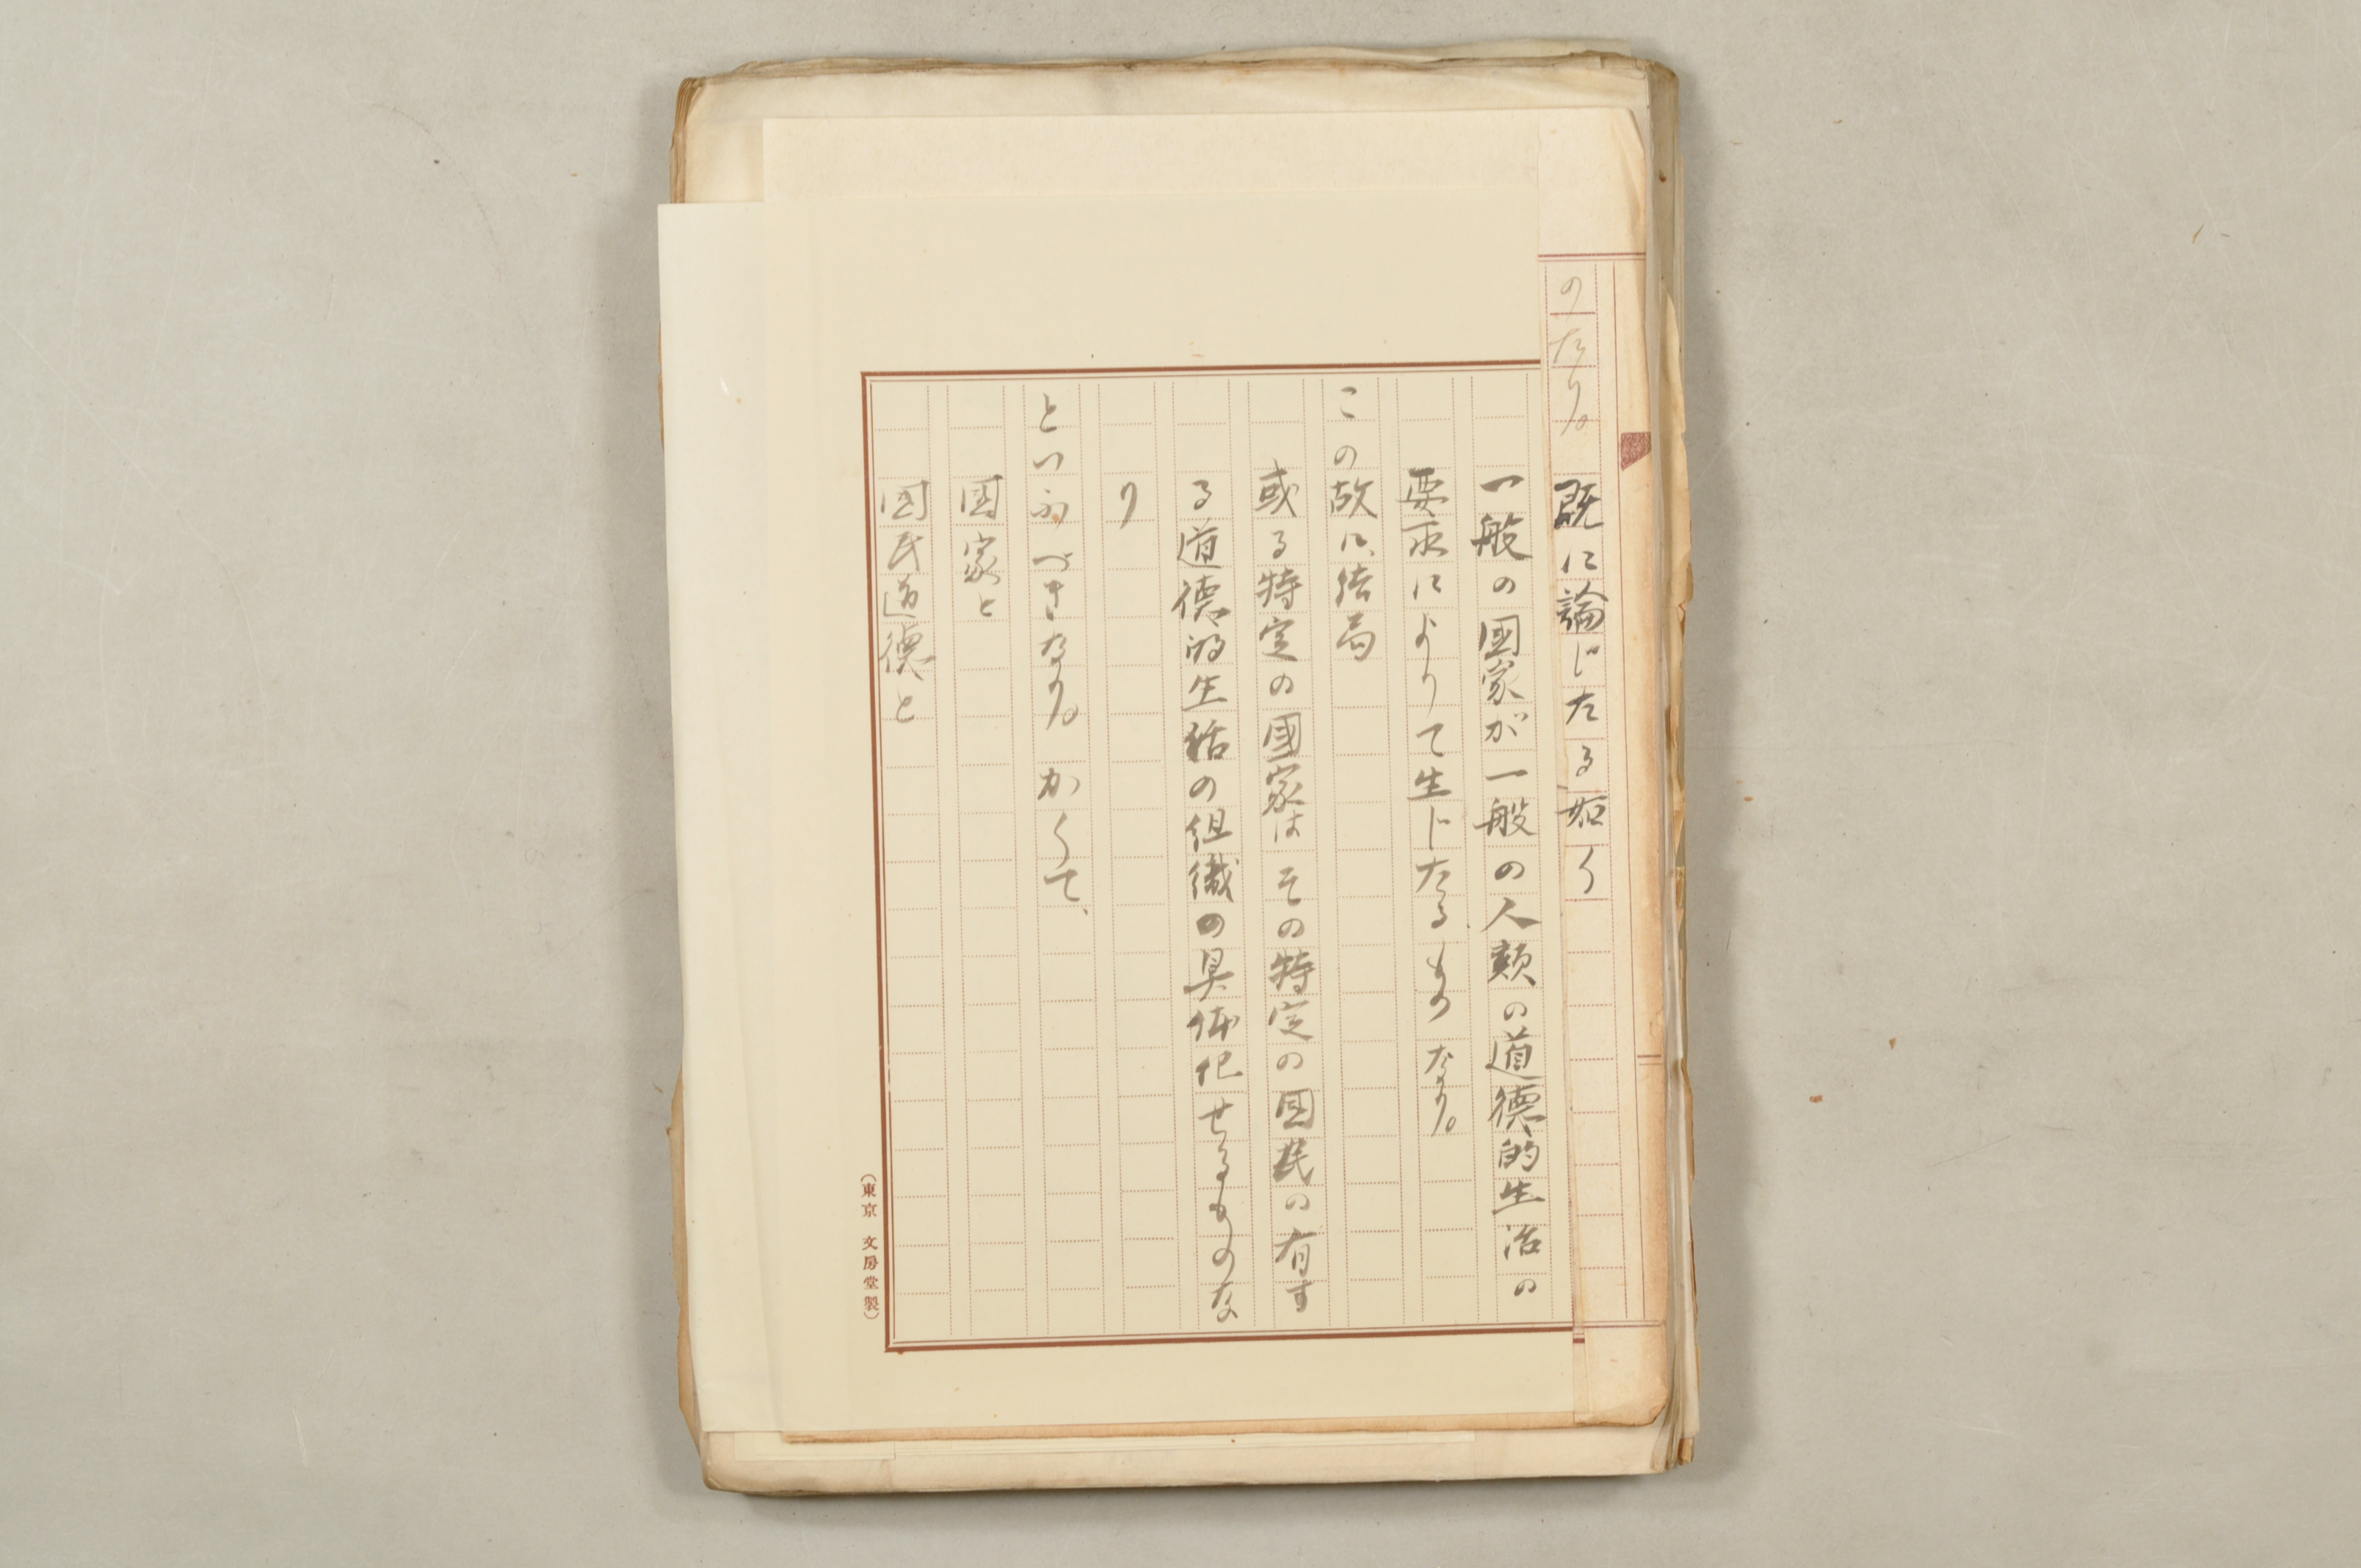 のなり。既に論じたる如く
一般の國家が一般の人類の道德的生活の
要求によりて生じたるものなり。
この故に、結局
或る特定の國家はその特定の国民の有す
る道德的生活の組織の具体化せるものな
り
といふべきなり。かくて、
国家と
国民道德と
（東京 文房堂製）